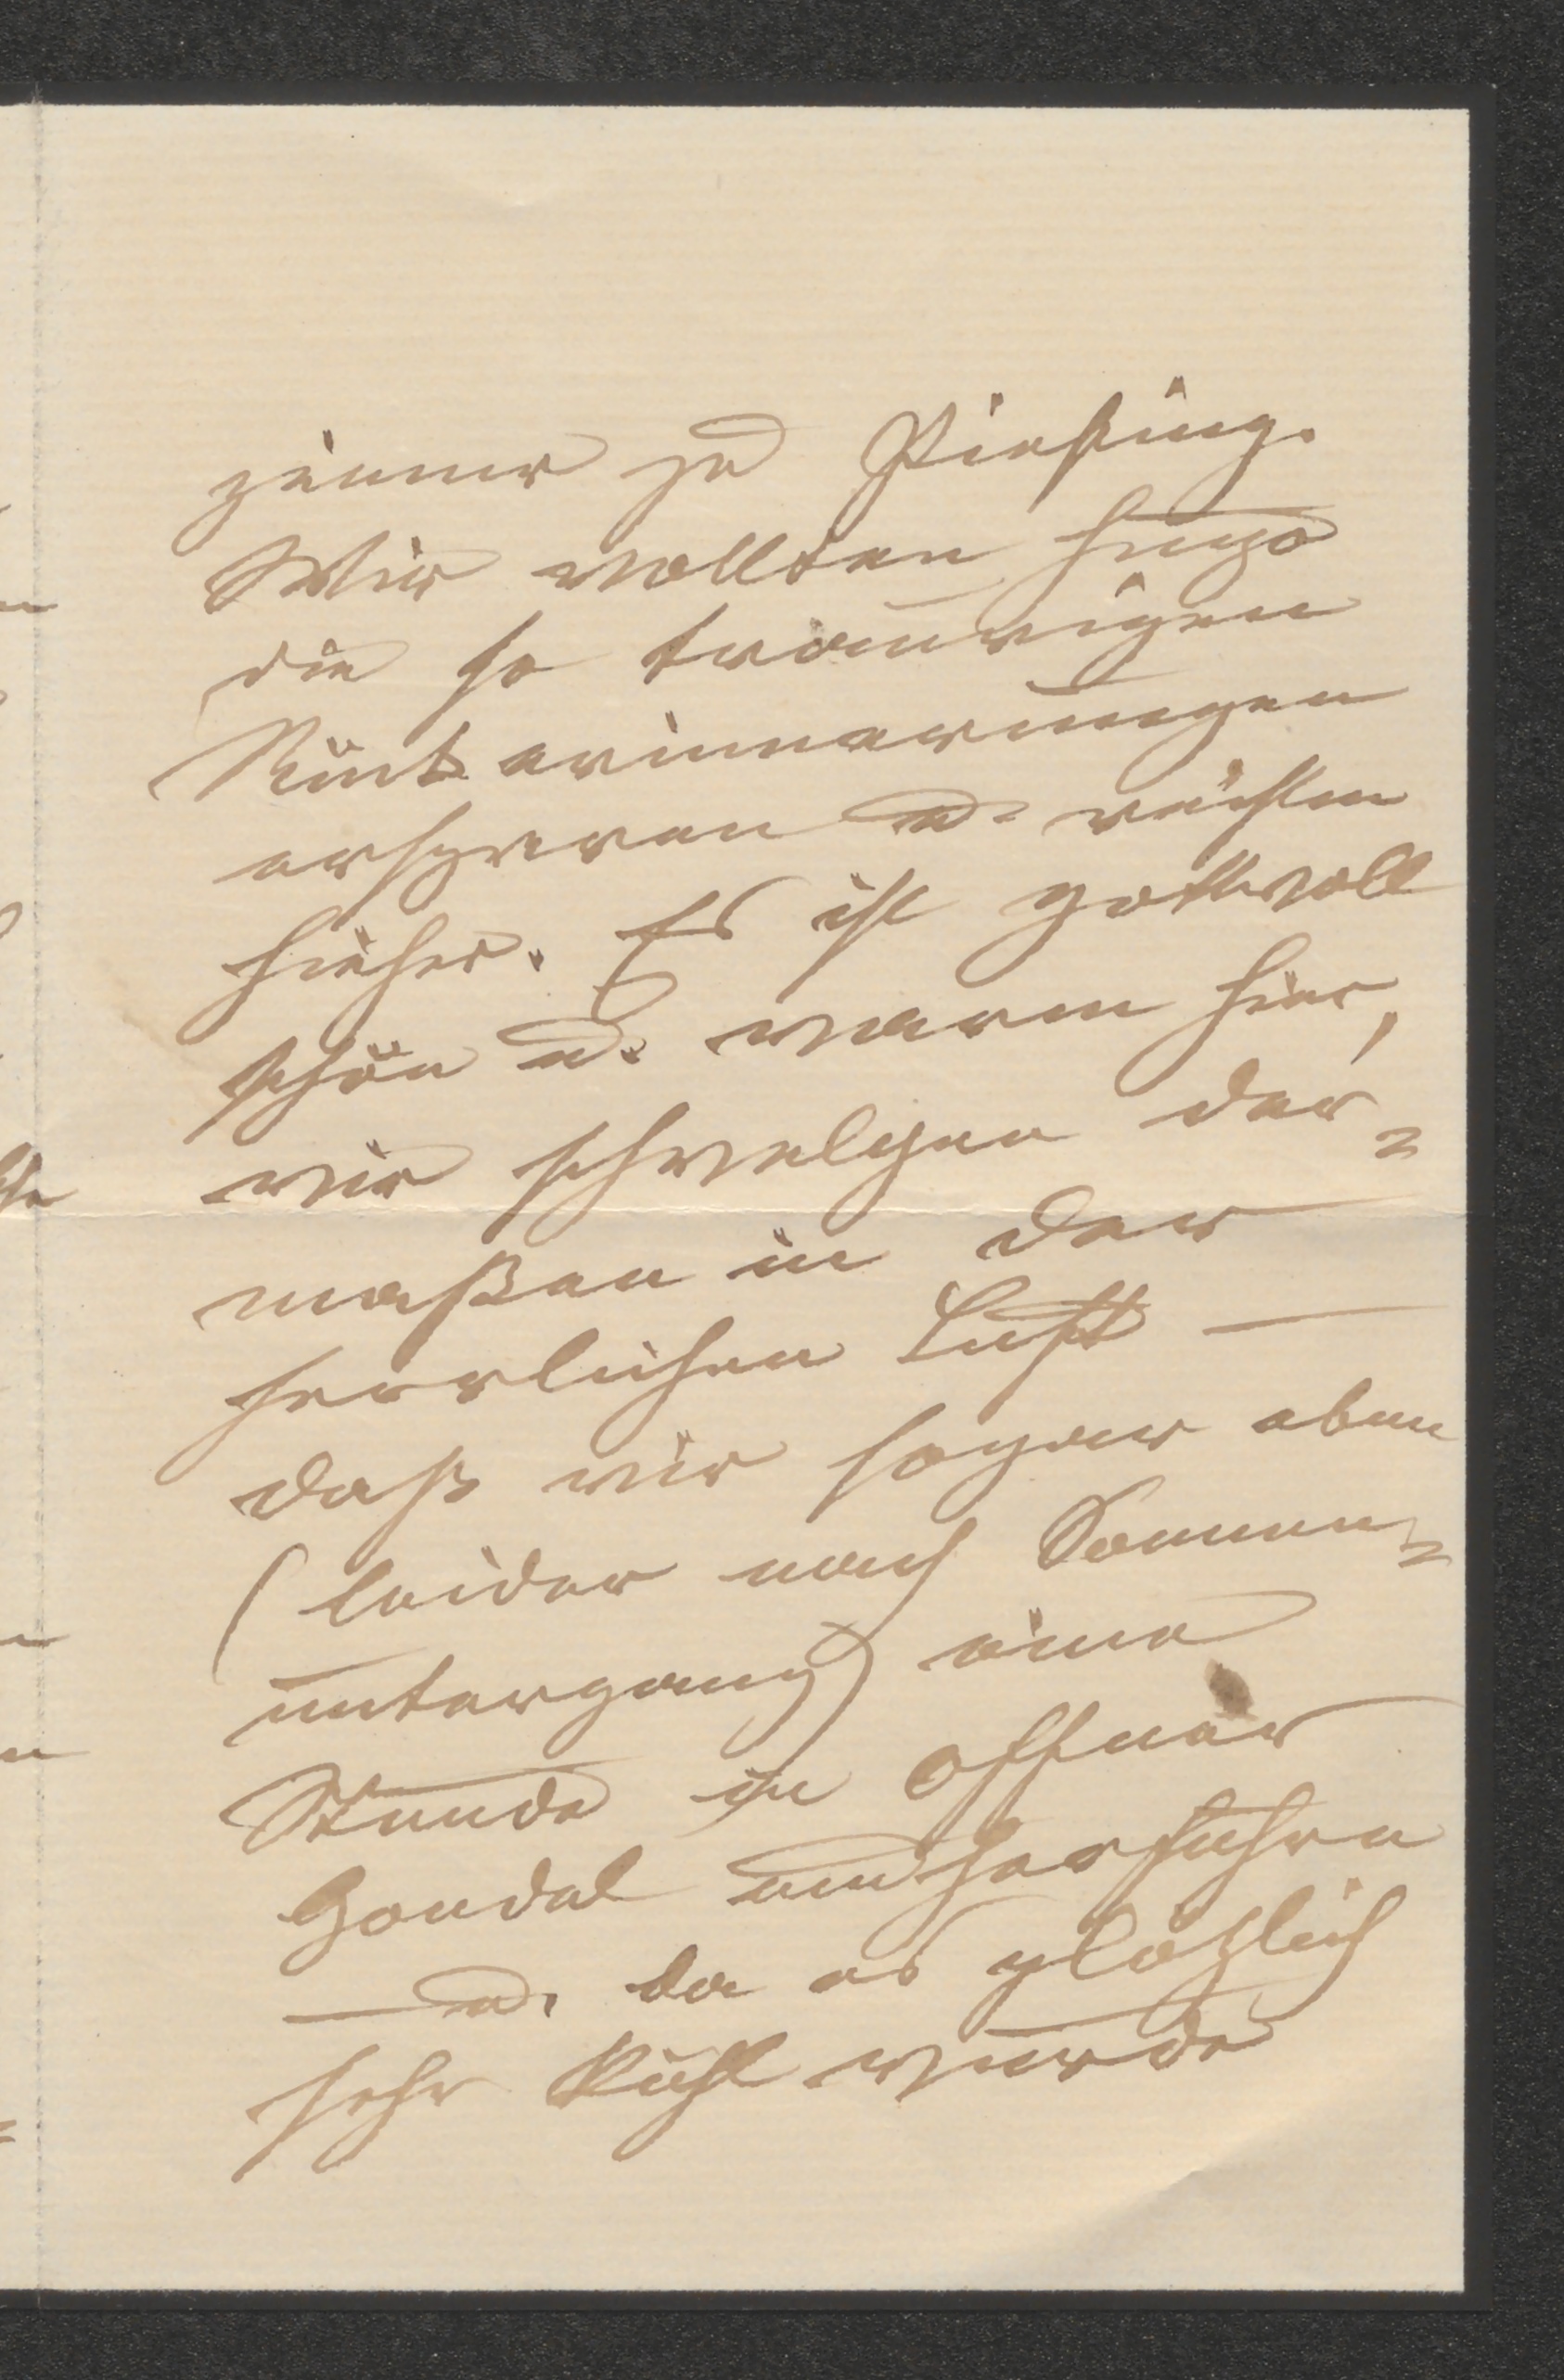 zimmer zu
Wir wollten Hugo
die so traurigen
Rückerinnerungen
ersparen u. reisten
hieher. Es ist gottvoll
schön u. warm hier,
wir schwelgen der-
maßen in der
herrlichen Luft —
daß wir sogar eben
(leider nach Sonnen-
untergang) eine
Stunde in offner
Gondel umherfuhren
— u. da es plötzlich
sehr kühl wurde